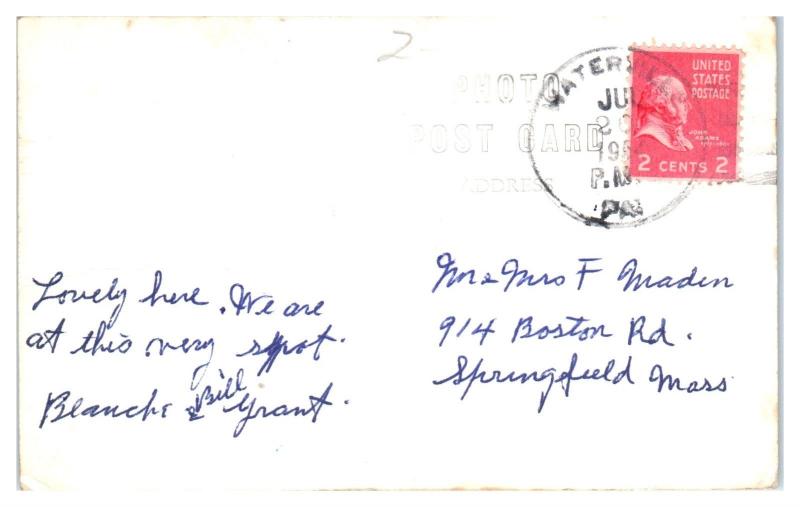 2
PHOTO
POST CARD
ADDRESS
WATERVILLE
JUL
P.M.
PA
UNITED
STATES
POSTAGE
JOHN
ADAMS
2 CENTS 2
Lovely here. We are
at this very spot.
Blanche & Bill Grant.
Mr & Mrs F Maden
914 Boston Rd.
Springfield Mass